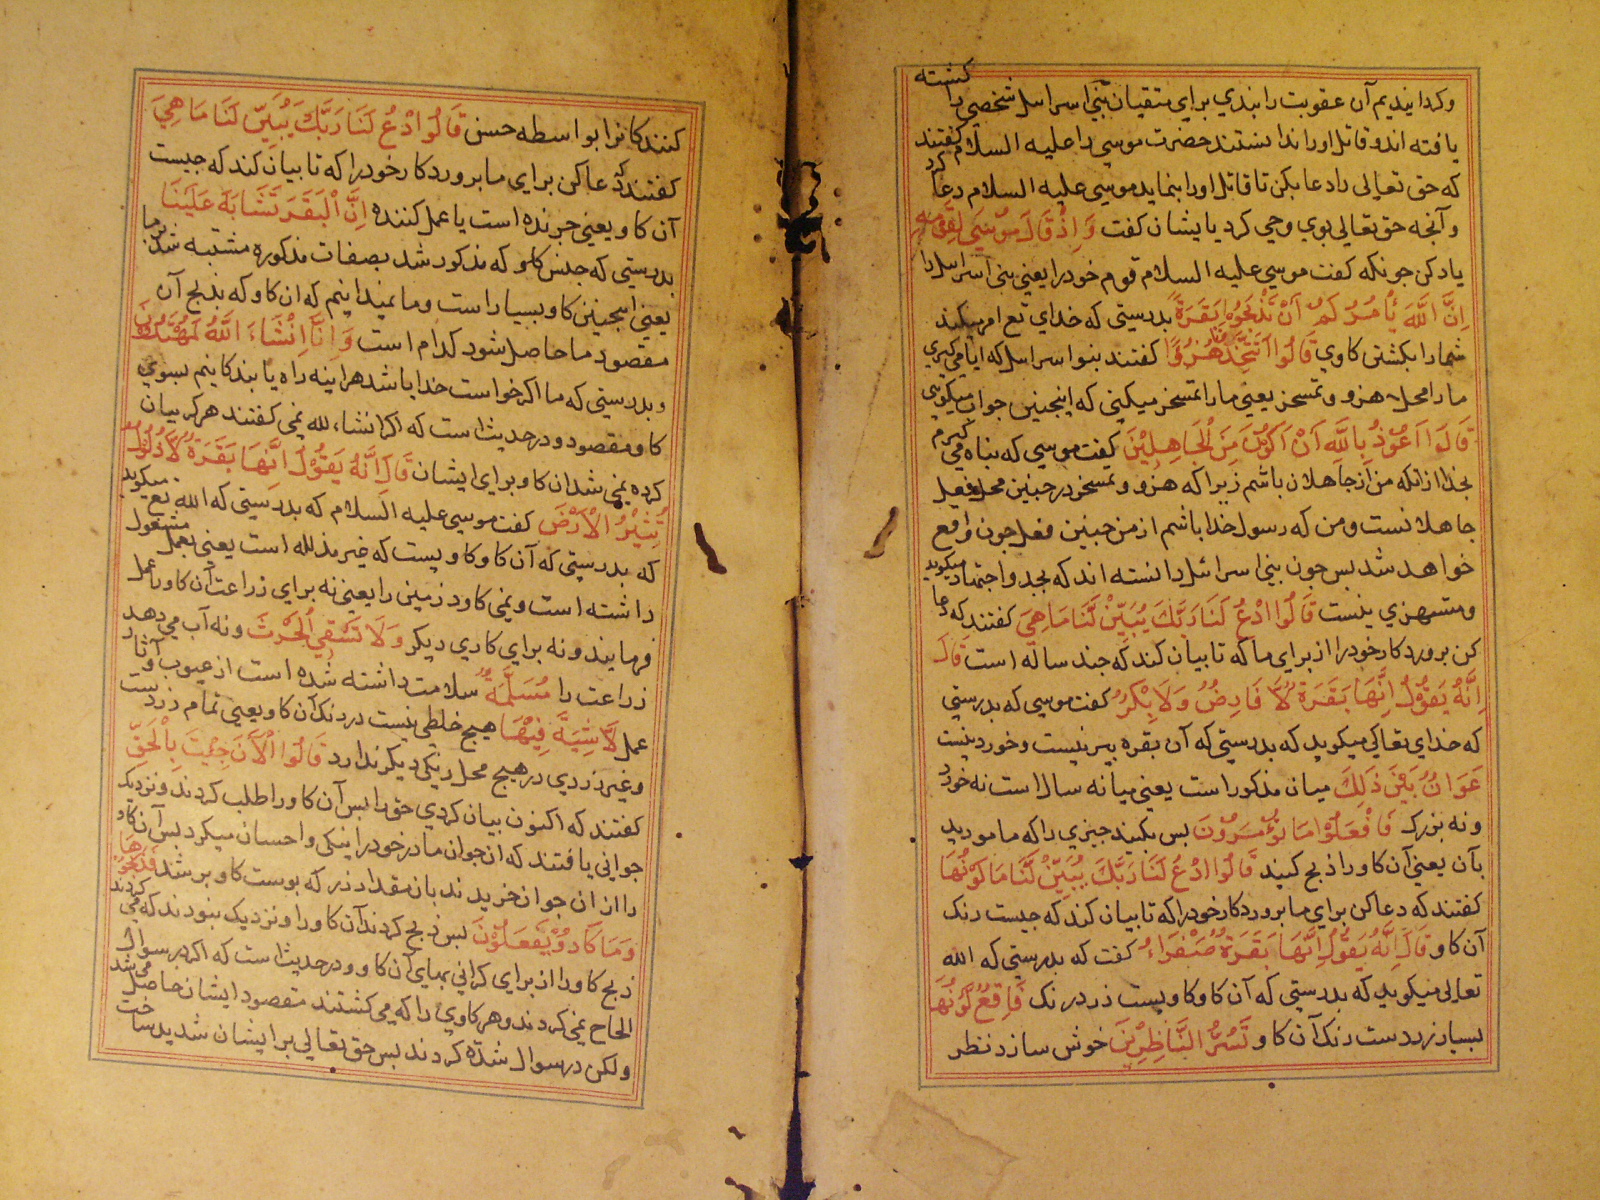 وكردانیدیم آن عقوبت را بندی برای متقیان بنی اسراسل شخصی را كشته
یافته اند و قاتل او را ندانستند حضرت موسی را علیه السلام كفتند
كه حق تعالی را دعا بكن تا قاتل او را بنماید موسی علیه السلام دعا كرد
و آنجه حق تعالی بوی وحی كرد بایشان كفت وَاِذْ قَالَ مُوْسٰی لِقَوْمِهٖ
یاد كن جونكه كفت موسی علیه السلام قوم خود را یعنی بنی آسراسل را
اِنَّ اللّٰهَ یَأْمُرُكُمْ اَنْ تَذْبَحُوْا بَقَرَةً بدرستی كه خدای تع امر میكند
شما را بكشتن كاوی قَالُوْا اَتَتَّخِذُنَا هُزُوًا كفتند بنوا سراسل كه ایا می كیری
ما را محل هزو و تمسخر یعنی ما را تمسخر میكنی كه اینجنین جواب میكویی
قَالَ اَعُوْذُ بِاللّٰهِ اَنْ اَكُوْنَ مِنَ الْجَاهِلِیْنَ كفت موسی كه بناه می كیرم
بخدا ازانكه من ازجاهلان باشم زیرا كه هزو و تمسخر درجنین محل فعل
جاهلانست و من كه رسول خدا باشم از من جنین فعل جون واقع
خواهد شد بس جون بنی اسرائل دانسته اند كه بجد و اجتهاد میكوید
و مستهزی نیست قَالُوْا ادْعُ لَنَا رَبَّكَ یُبَیِّنْ لَنَا مَاهِیَ كفتند كه دعا
كن برورد كار خود را از برای ما كه تا بیان كند كه جند ساله است قَالَ
اِنَّهُ یَقُوْلُ اِنَّهَا بَقَرَةٌ لَا فَارِضٌ وَلَا بِكْرٌ كفت موسی كه بدرستی
كه خدای تعالی میكوید كه بدرستی كه آن بقره بیر نیست و خورد نیست
عَوَانٌ بَیْنَ ذٰلِكَ میان مذكور است یعنی میانه سال است نه خورد
و نه بزرك فَافْعَلُوْا مَا تُؤْمَرُوْنَ بس بكنید جیزی را كه مامورید
بآن یعنی آن كاو را ذبح كنید قَالُوْا ادْعُ لَنَا رَبَّكَ یُبَیِّنْ لَنَا مَا لَوْنُهَا
كفتند كه دعا كن برای ما برورد كار خود را كه تا بیان كند كه جیست رنك
آن كاو قَالَ اِنَّهُ یَقُوْلُ اِنَّهَا بَقَرَةٌ صَفْرَاءُ كفت كه بدرستی كه الله
تعالی میكوید كه بدرستی كه آن كاو كاویست زرد رنك فَاقِعٌ لَوْنُهَا
بسیار زردست رنك آن كاو تَسُرُّ النَّاظِرِیْنَ خوش سازد نظر
كنند كانرا بواسطه حسنی قَالُوْا ادْعُ لَنَا رَبَّكَ یُبَیِّنْ لَنَا مَاهِیَ
كفتند كه دعا كن برای ما برورد كار خود را كه تا بیان كند كه جیست
آن كاو یعنی جرنده است یا عمل كننده اِنَّ الْبَقَرَ تَشَابَهَ عَلَیْنَا
بدرستی كه جنس كاو كه مذكور شد بصفات مذكوره مشتبه شد برما
یعنی اینجنین كاو بسیار است و ما نمیدانیم كه ان كاو كه بذبح آن
مقصود ما حاصل شود كدام است وَاِنَّا اِنْشَاءَ اللّٰهُ لَمُهْتَدُوْنَ
و بدرستی كه ما اكر خواست خدا باشد هراینه راه یابند كانیم بسوی
كاو مقصود و درحدیث است كه اكر انشاء لله نمی كفتند هركز بیان
كرده نمی شد ان كاو برای ایشان قَالَ اِنَّهُ یَقُوْلُ اِنَّهَا بَقَرَةٌ لَا ذَلُوْلٌ
تُثِیْرُ الْاَرْضَ كفت موسی علیه السلام كه بدرستی كه الله تع میكوید
كه بدرستی كه آن كاو كاویست كه غیر مذلله است یعنی بعمل مشغول
داشته است و نمی كاود زمین را یعنی نه برای زراعت آن كاو را عمل
فرمایند و نه برای كاری دیكر وَلَا تَسْقِی الْحَرْثَ و نه آب می دهد
زراعت را مُسَلَّمَةٌ سلامت داشته شده است از عیوب و آثار
عمل لَا شِیَةَ فِیْهَا هیج خلطی نیست در رنك آن كاو یعنی تمام زردست
و غیر زردی در هیج محل رنكی دیكر ندارد قَالُوْا الْاٰنَ جِئْتَ بِالْحَقِّ
كفتند كه اكنون بیان كردی حق را بس آن كاو را طلب كردند و نزدیك
جوانی یافتند كه ان جوان مادر خود را نیكی و احسان میكرد بس آن كاو
را از ان جوان خریدند بان مقدار زر كه بوست كاو بر شد فَذَبَحُوْهَا
وَمَا كَادُوْا یَفْعَلُوْنَ بس ذبح كردند آن كاو را و نزدیك نبودند كه می كردند
ذبح كاو را از برای كرانی بهای آن كاو و درحدیث است كه اكر در سوال
الحاح نمی كردند و هر كاوی را كه می كشتند مقصود ایشان حاصل می شد
ولكن در سوال شدّه كردند بس حق تعالی بر ایشان شدید ساخت